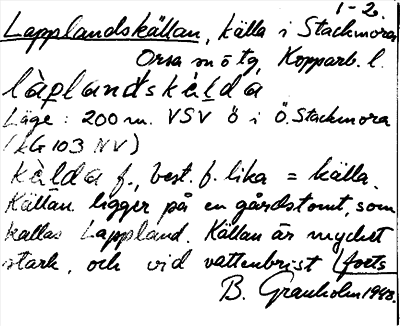 1-2.
Lapplandskällan, källa i Stackmora
Orsa sn ö tg, Kopparb. l.
làplandskèlda
Läge: 200 m. VSV Ö i Ö. Stackmora
(kG 103 NV)
kèlda f., best. f. lika = källa.
Källan ligger på en gårdstomt, som
kallas Lappland. Källan är mycket
stark, och vid vattenbrist (forts
B. Granholm 1948.